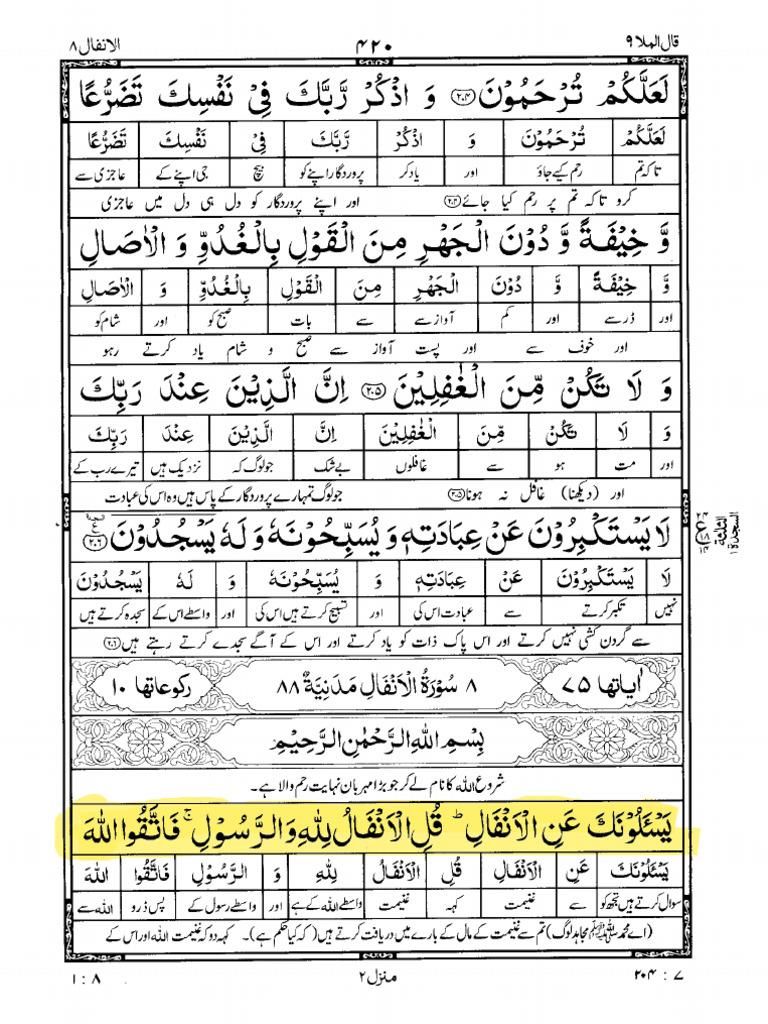 قال الملا ٩ ۴۲۰ الانفال ٨
لَعَلَّكُمْ تُرْحَمُوْنَ ﴿۲۰۴﴾ وَ اذْكُرْ رَّبَّكَ فِیْ نَفْسِكَ تَضَرُّعًا
لَعَلَّكُمْ تُرْحَمُوْنَ وَ اذْكُرْ رَّبَّكَ فِیْ نَفْسِكَ تَضَرُّعًا
تاکہ تم رحم کیے جاؤ اور یاد کر پروردگار اپنے کو بیچ جی اپنے کے عاجزی سے
کرو تاکہ تم پر رحم کیا جائے ﴿۲۰۴﴾ اور اپنے پروردگار کو دل ہی دل میں عاجزی
وَّ خِیْفَةً وَّ دُوْنَ الْجَهْرِ مِنَ الْقَوْلِ بِالْغُدُوِّ وَ الْاٰصَالِ
وَّ خِیْفَةً وَّ دُوْنَ الْجَهْرِ مِنَ الْقَوْلِ بِالْغُدُوِّ وَ الْاٰصَالِ
اور ڈر سے اور کم آواز سے سے بات صبح کو اور شام کو
اور خوف سے اور پست آواز سے صبح و شام یاد کرتے رہو
وَ لَا تَكُنْ مِّنَ الْغٰفِلِیْنَ ﴿۲۰۵﴾ اِنَّ الَّذِیْنَ عِنْدَ رَبِّكَ
وَ لَا تَكُنْ مِّنَ الْغٰفِلِیْنَ اِنَّ الَّذِیْنَ عِنْدَ رَبِّكَ
اور مت ہو سے غافلوں بے شک جو لوگ کہ نزدیک ہیں تیرے رب کے
اور (دیکھنا) غافل نہ ہونا ﴿۲۰۵﴾ جو لوگ تمہارے پروردگار کے پاس ہیں وہ اس کی عبادت
لَا یَسْتَكْبِرُوْنَ عَنْ عِبَادَتِهٖ وَ یُسَبِّحُوْنَهٗ وَ لَهٗ یَسْجُدُوْنَ ﴿۲۰۶﴾
لَا یَسْتَكْبِرُوْنَ عَنْ عِبَادَتِهٖ وَ یُسَبِّحُوْنَهٗ وَ لَهٗ یَسْجُدُوْنَ
نہیں تکبر کرتے سے عبادت اس کی اور تسبیح کرتے ہیں اس کی اور واسطے اس کے سجدہ کرتے ہیں
سے گردن کشی نہیں کرتے اور اس پاک ذات کو یاد کرتے اور اس کے آگے سجدے کرتے رہتے ہیں ﴿۲۰۶﴾
اٰیاتها ۷۵ ٨ سُوْرَةُ الْاَنْفَالِ مَدَنِیَّةٌ ٨٨ رکوعاتها ۱۰
بِسْمِ اللهِ الرَّحْمٰنِ الرَّحِیْمِ
شروع اللہ کا نام لے کر جو بڑا مہربان نہایت رحم والا ہے۔
یَسْـَٔلُوْنَكَ عَنِ الْاَنْفَالِ ؕ قُلِ الْاَنْفَالُ لِلّٰهِ وَ الرَّسُوْلِ ۚ فَاتَّقُوا اللهَ
یَسْـَٔلُوْنَكَ عَنِ الْاَنْفَالِ قُلِ الْاَنْفَالُ لِلّٰهِ وَ الرَّسُوْلِ فَاتَّقُوا اللهَ
سوال کرتے ہیں تجھ کو سے غنیمت کہہ غنیمت واسطے اللہ کے ہے اور واسطے رسول کے پس ڈرو اللہ سے
(اے محمد ﷺ مجاہد لوگ) تم سے غنیمت کے مال کے بارے میں دریافت کرتے ہیں (کہ کیا حکم ہے)۔ کہہ دو کہ غنیمت اللہ اور اس کے
۷ : ۲۰۴ منزل ۲ ٨ : ۱